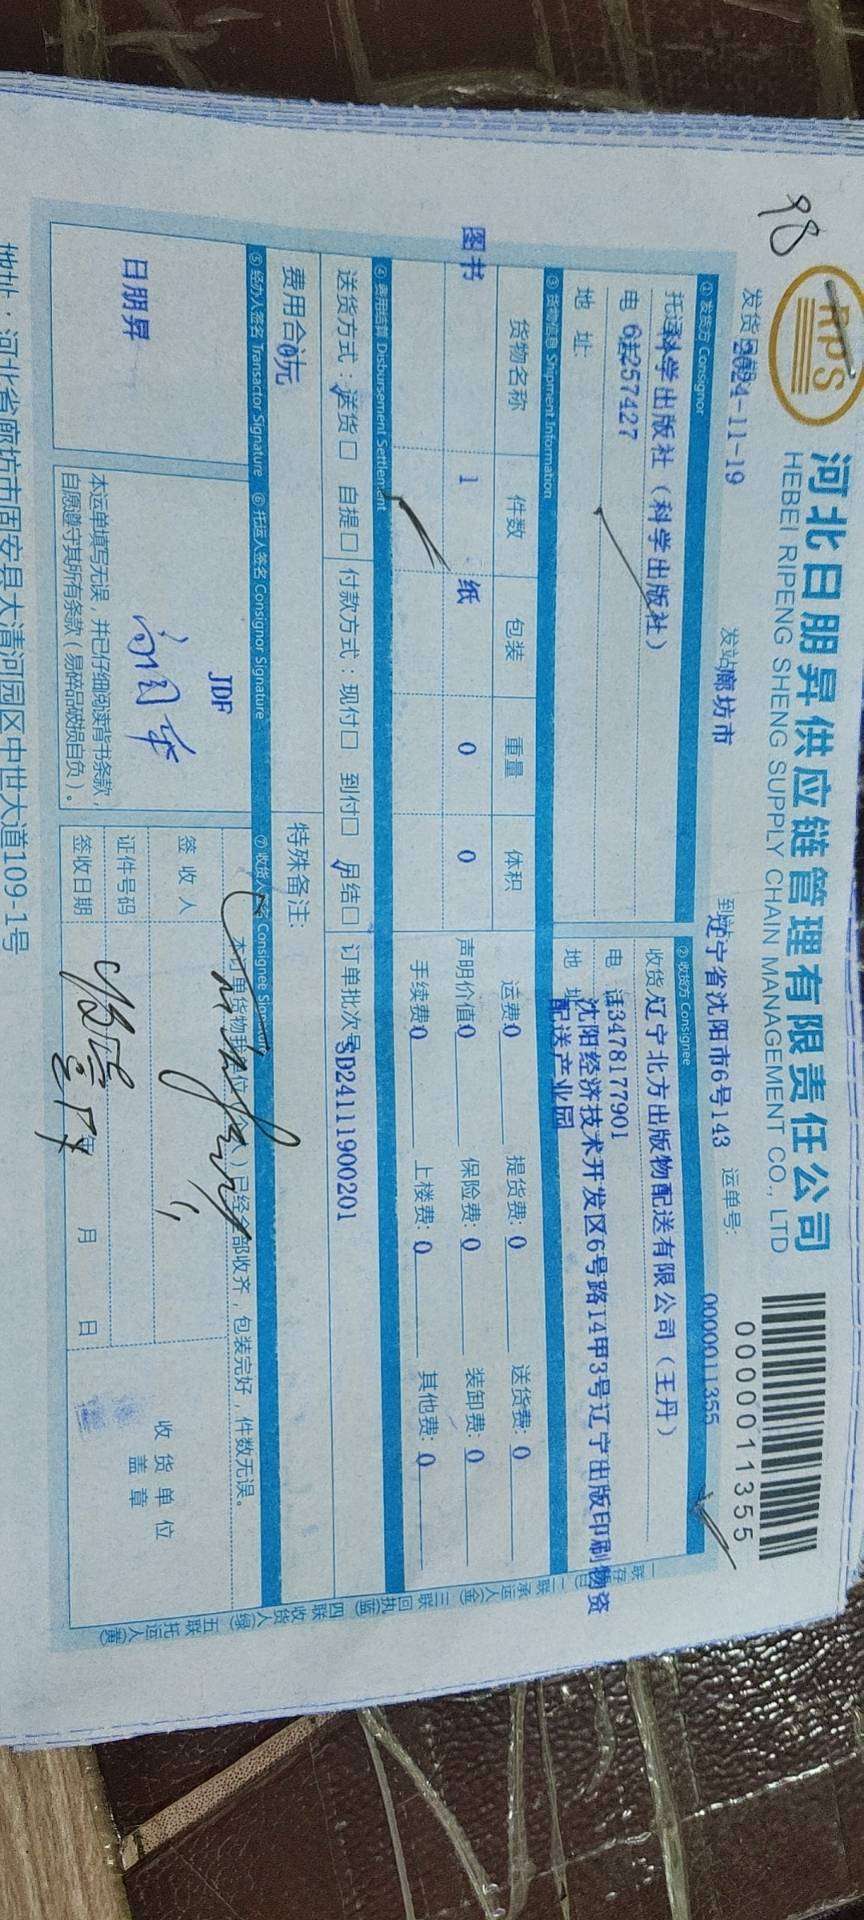 98
RPS
河北日朋昇供应链管理有限责任公司
HEBEI RIPENG SHENG SUPPLY CHAIN MANAGEMENT CO., LTD
0000011355
发货 2024-11-19 发站廊坊市 到 辽宁省沈阳市6号143 运单号: 0000011355
① 发货方 Consignor
托运 科学出版社（科学出版社）
电 话 61257427
地 址:
② 收货方 Consignee
收货 辽宁北方出版物配送有限公司（王丹）
电 话 3478177901
地 址 沈阳经济技术开发区6号路14甲3号辽宁出版印刷物资
配送产业园
③ 货物信息 Shipment Information
货物名称 件数 包装 重量 体积
图书 1 纸 0 0
运费:0 提货费: 0 送货费: 0
声明价值0 保险费: 0 装卸费: 0
手续费0 上楼费: 0 其他费: 0
④ 费用结算 Disbursement Settlement
送货方式：送货口 自提口 付款方式：现付口 到付口 月结口 订单批次号 SD2411900201
费用合 0元 特殊备注:
⑤ 经办人签名 Transactor Signature ⑥ 托运人签名 Consignor Signature ⑦ 收货人签名 Consignee Signature
日朋昇
JDF
本运单填写无误，并已仔细阅读背书条款，
自愿遵守其所有条款（易碎品破损自负）。
本订单货物我单位（个人）已经全部收齐，包装完好，件数无误。
签 收 人
证件号码
签收日期 年 月 日
收 货 单 位
盖 章
一联存根(白) 二联承运人(金) 三联回执(蓝) 四联收货人(绿) 五联托运人(黄)
地址：河北省廊坊市固安县大清河园区中世大道109-1号